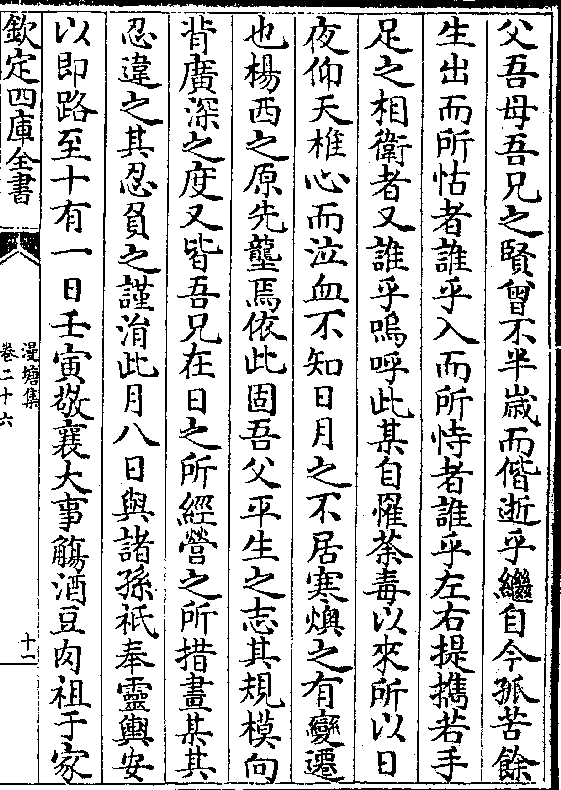 父吾母吾兄之賢曾不半歲而偕逝乎繼自今孤苦餘
生出而所怙者誰乎入而所恃者誰乎左右提攜若手
足之相衛者又誰乎嗚呼此某自罹荼毒以來所以日
夜仰天椎心而泣血不知日月之不居寒燠之有變遷
也楊西之原先壟焉依此固吾父平生之志其規模向
背廣深之度又皆吾兄在日之所經營之所措畫某其
忍違之其忍負之謹涓此月八日與諸孫祗奉靈輿安
以即路至十有一日壬寅敬襄大事觴酒豆肉祖于家
欽定四庫全書
漫塘集
卷二十六
十一